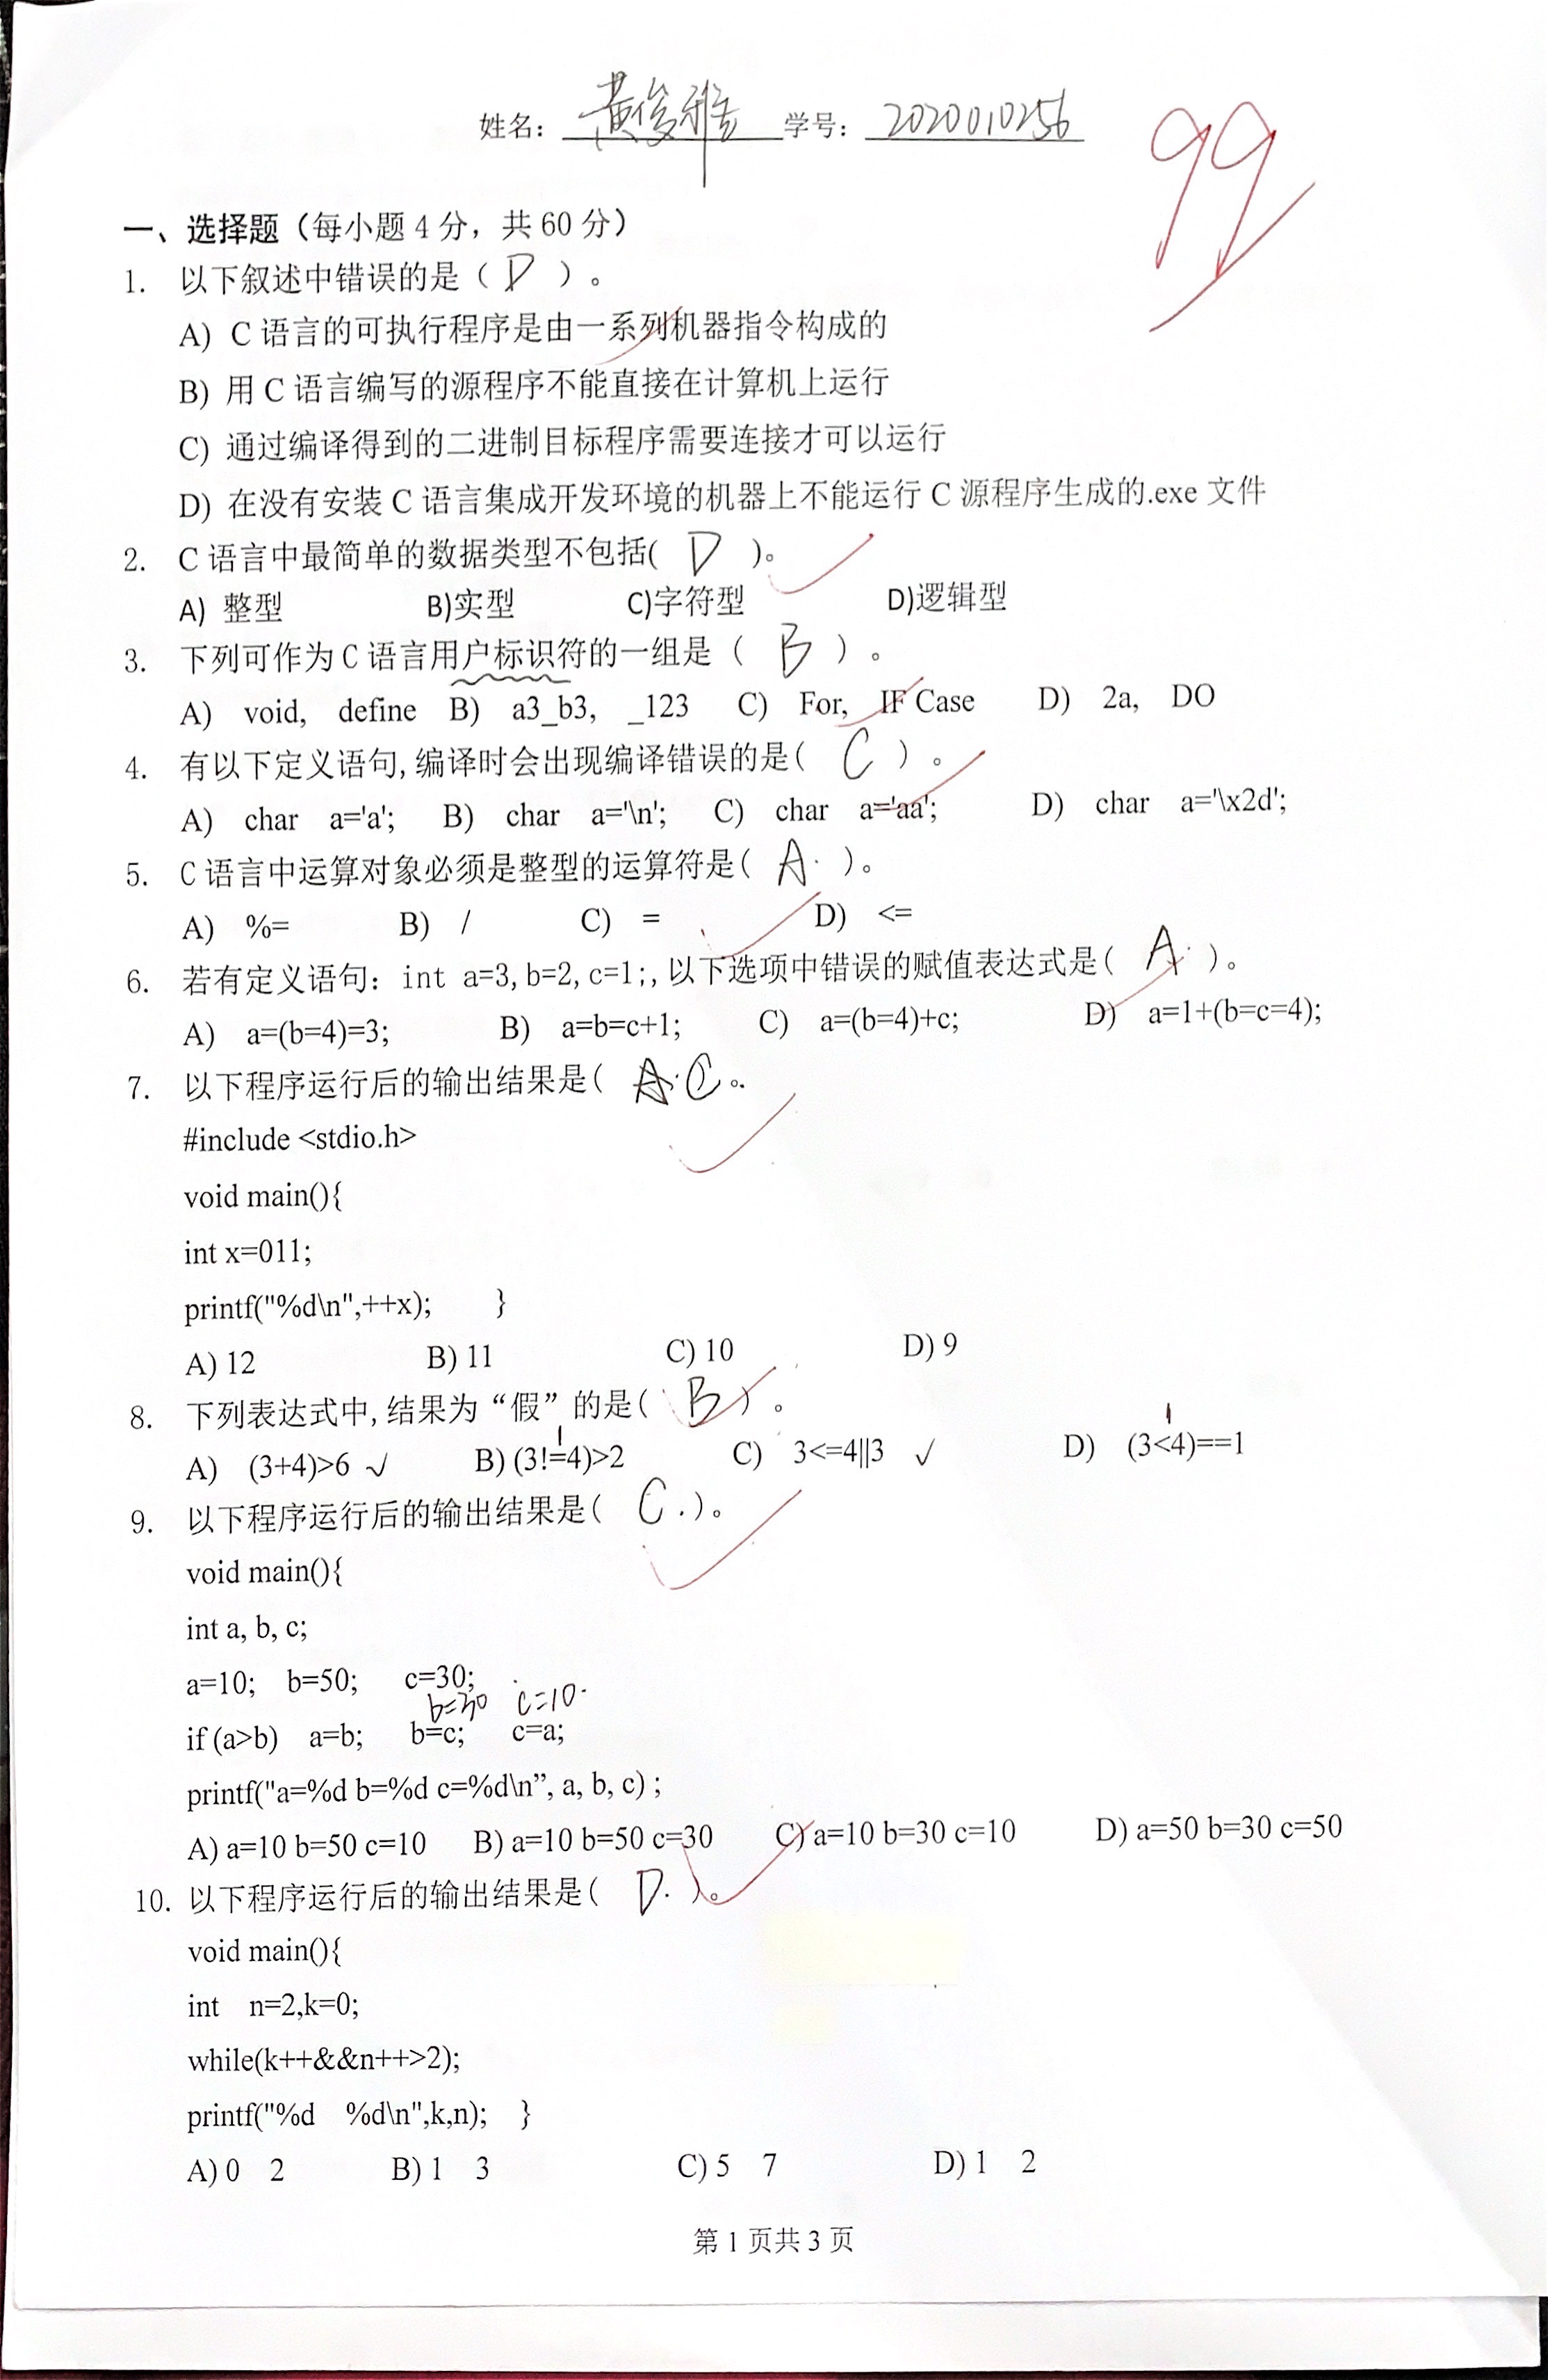 姓名：黄俊雅 学号：2020010256
99
一、选择题（每小题 4 分，共 60 分）
1. 以下叙述中错误的是（ D ）。
A) C 语言的可执行程序是由一系列机器指令构成的
B) 用 C 语言编写的源程序不能直接在计算机上运行
C) 通过编译得到的二进制目标程序需要连接才可以运行
D) 在没有安装 C 语言集成开发环境的机器上不能运行 C 源程序生成的.exe 文件
2. C 语言中最简单的数据类型不包括( D )。
A) 整型 B)实型 C)字符型 D)逻辑型
3. 下列可作为 C 语言用户标识符的一组是（ B ）。
A) void, define B) a3_b3, _123 C) For, IF Case D) 2a, DO
4. 有以下定义语句,编译时会出现编译错误的是( C ）。
A) char a='a'; B) char a='\n'; C) char a='aa'; D) char a='\x2d';
5. C 语言中运算对象必须是整型的运算符是( A. )。
A) %= B) / C) = D) <=
6. 若有定义语句：int a=3,b=2,c=1;,以下选项中错误的赋值表达式是( A. )。
A) a=(b=4)=3; B) a=b=c+1; C) a=(b=4)+c; D) a=1+(b=c=4);
7. 以下程序运行后的输出结果是( C 。
#include <stdio.h>
void main(){
int x=011;
printf("%d\n",++x); }
A) 12 B) 11 C) 10 D) 9
8. 下列表达式中,结果为“假”的是( B ）。
1 1
A) (3+4)>6 √ B) (3!=4)>2 C) 3<=4||3 √ D) (3<4)==1
9. 以下程序运行后的输出结果是( C . )。
void main(){
int a, b, c;
a=10; b=50; c=30;
b=30 c=10.
if (a>b) a=b; b=c; c=a;
printf("a=%d b=%d c=%d\n”, a, b, c) ;
A) a=10 b=50 c=10 B) a=10 b=50 c=30 C) a=10 b=30 c=10 D) a=50 b=30 c=50
10. 以下程序运行后的输出结果是( D. )。
void main(){
int n=2,k=0;
while(k++&&n++>2);
printf("%d %d\n",k,n); }
A) 0 2 B) 1 3 C) 5 7 D) 1 2
第 1 页共 3 页